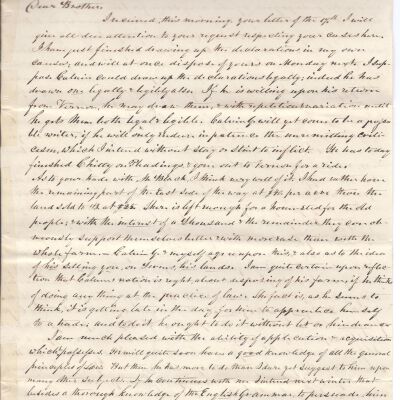 Dear Brother
I received, this morning, your letter of the 17th. I will
give all due attention to your request respecting your causes here.
I have just finished drawing up the declarations in my own
causes, and will at once dispose of yours on Monday next. I sup-
pose Calvin could draw up the declarations legally; indeed he has
drawn one legally & legibly often. If he is willing upon his return
from Vernon, he may draw them, & with repetition & variation until
he gets them both legal & legible. Calvin G will yet come to be a possi-
ble writer, if he will only endure in patience the unremitting criti-
cism, which I intend without stay or stint to inflict. He has to day
finished Chitty on Pleadings & gone out to Vernon for a ride.
As to your trade with Mr I think very well of it. I had rather have
the remaining part of the east side of the way at per acre than the
land sold to at $25. There is left enough for a homestead for the old
people; with the interest of a thousand & the remainder they can
support themselves better with more ease than with the
whole farm. Calvin G & myself agree upon this; & also as to the idea
of his selling you, on Terms, his lands. I am quite certain upon reflec-
tion that Calvin's notion is right about disposing of his farm; if he thinks
of doing any thing at the practice of law. The fact is, as he seems to
think, it is getting late in the day for him to apprentice himself
to a trade; and to do it he ought to do it without let or hindrance.
I am much pleased with the ability of application & acquisition
which he possesses. He will quite soon have a good knowledge of all the general
principles of law. But then he has more to do than I dare yet suggest to him upon
many other subjects. If he continues with me I intend next winter that
besides a thorough knowledge of the English Grammar to persuade him